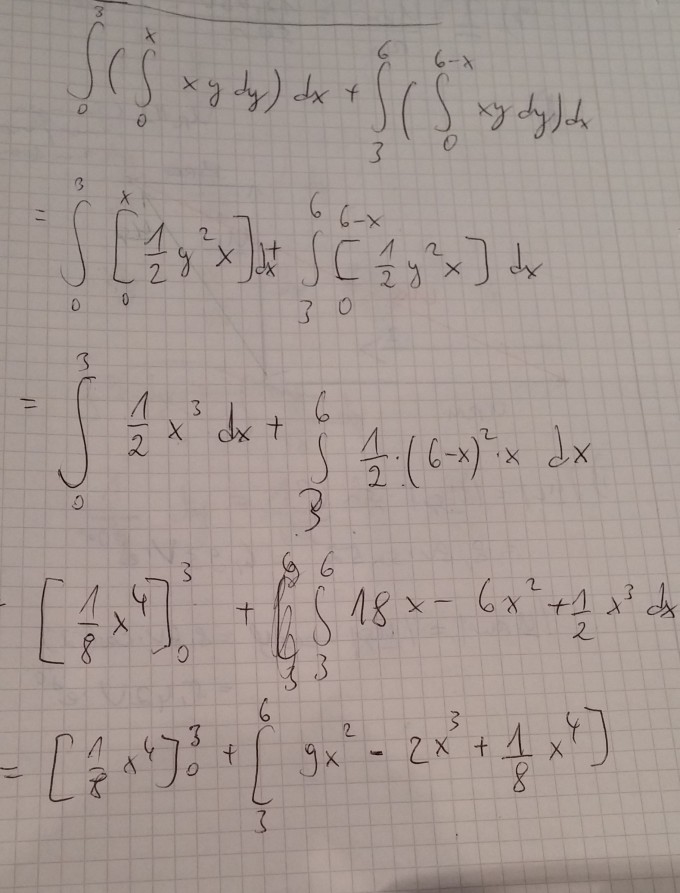 ∫₀³ ( ∫₀ˣ xy dy ) dx + ∫₃⁶ ( ∫₀⁶⁻ˣ xy dy ) dx
= ∫₀³ [₀ˣ 1/2 y² x ] dx + ∫₃⁶ [₀⁶⁻ˣ 1/2 y² x ] dx
= ∫₀³ 1/2 x³ dx + ∫₃⁶ 1/2 · (6-x)² · x dx
[ 1/8 x⁴ ]₀³ + ∫₃⁶ 18x - 6x² + 1/2 x³ dx
= [ 1/8 x⁴ ]₀³ + [₃⁶ 9x² - 2x³ + 1/8 x⁴ ]